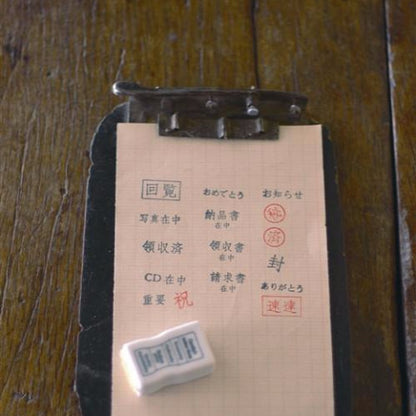 回覧 おめでとう お知らせ
写真在中 納品書在中 秘
領収済 領収書在中 済
CD在中 請求書在中 封
重要 祝 ありがとう
速達